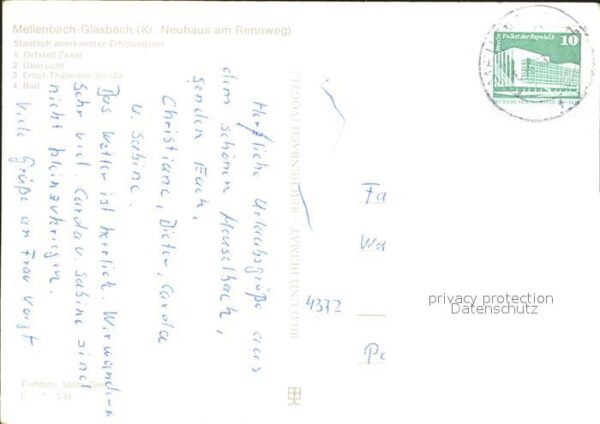 Mellenbach-Glasbach (Kr. Neuhaus am Rennweg)
Staatlich anerkannter Erholungsort
1- Ortsteil Zirkel
2- Übersicht
3- Ernst-Thälmann-Straße
4- Bad
Herzliche Urlaubsgrüße aus
dem schönen Meuselbach,
senden Euch,
Christiane, Dieter, Carola
u. Sabine.
Das Wetter ist herrlich. Wir wandern
sehr viel. Carola u. Sabine sind
nicht kleinzukriegen.
Viele Grüße an Frau Voigt
Farbfoto:
BILD UND HEIMAT REICHENBACH (VOGTL)
Palast der Republik
10
Fa
4372
privacy protection
Datenschutz